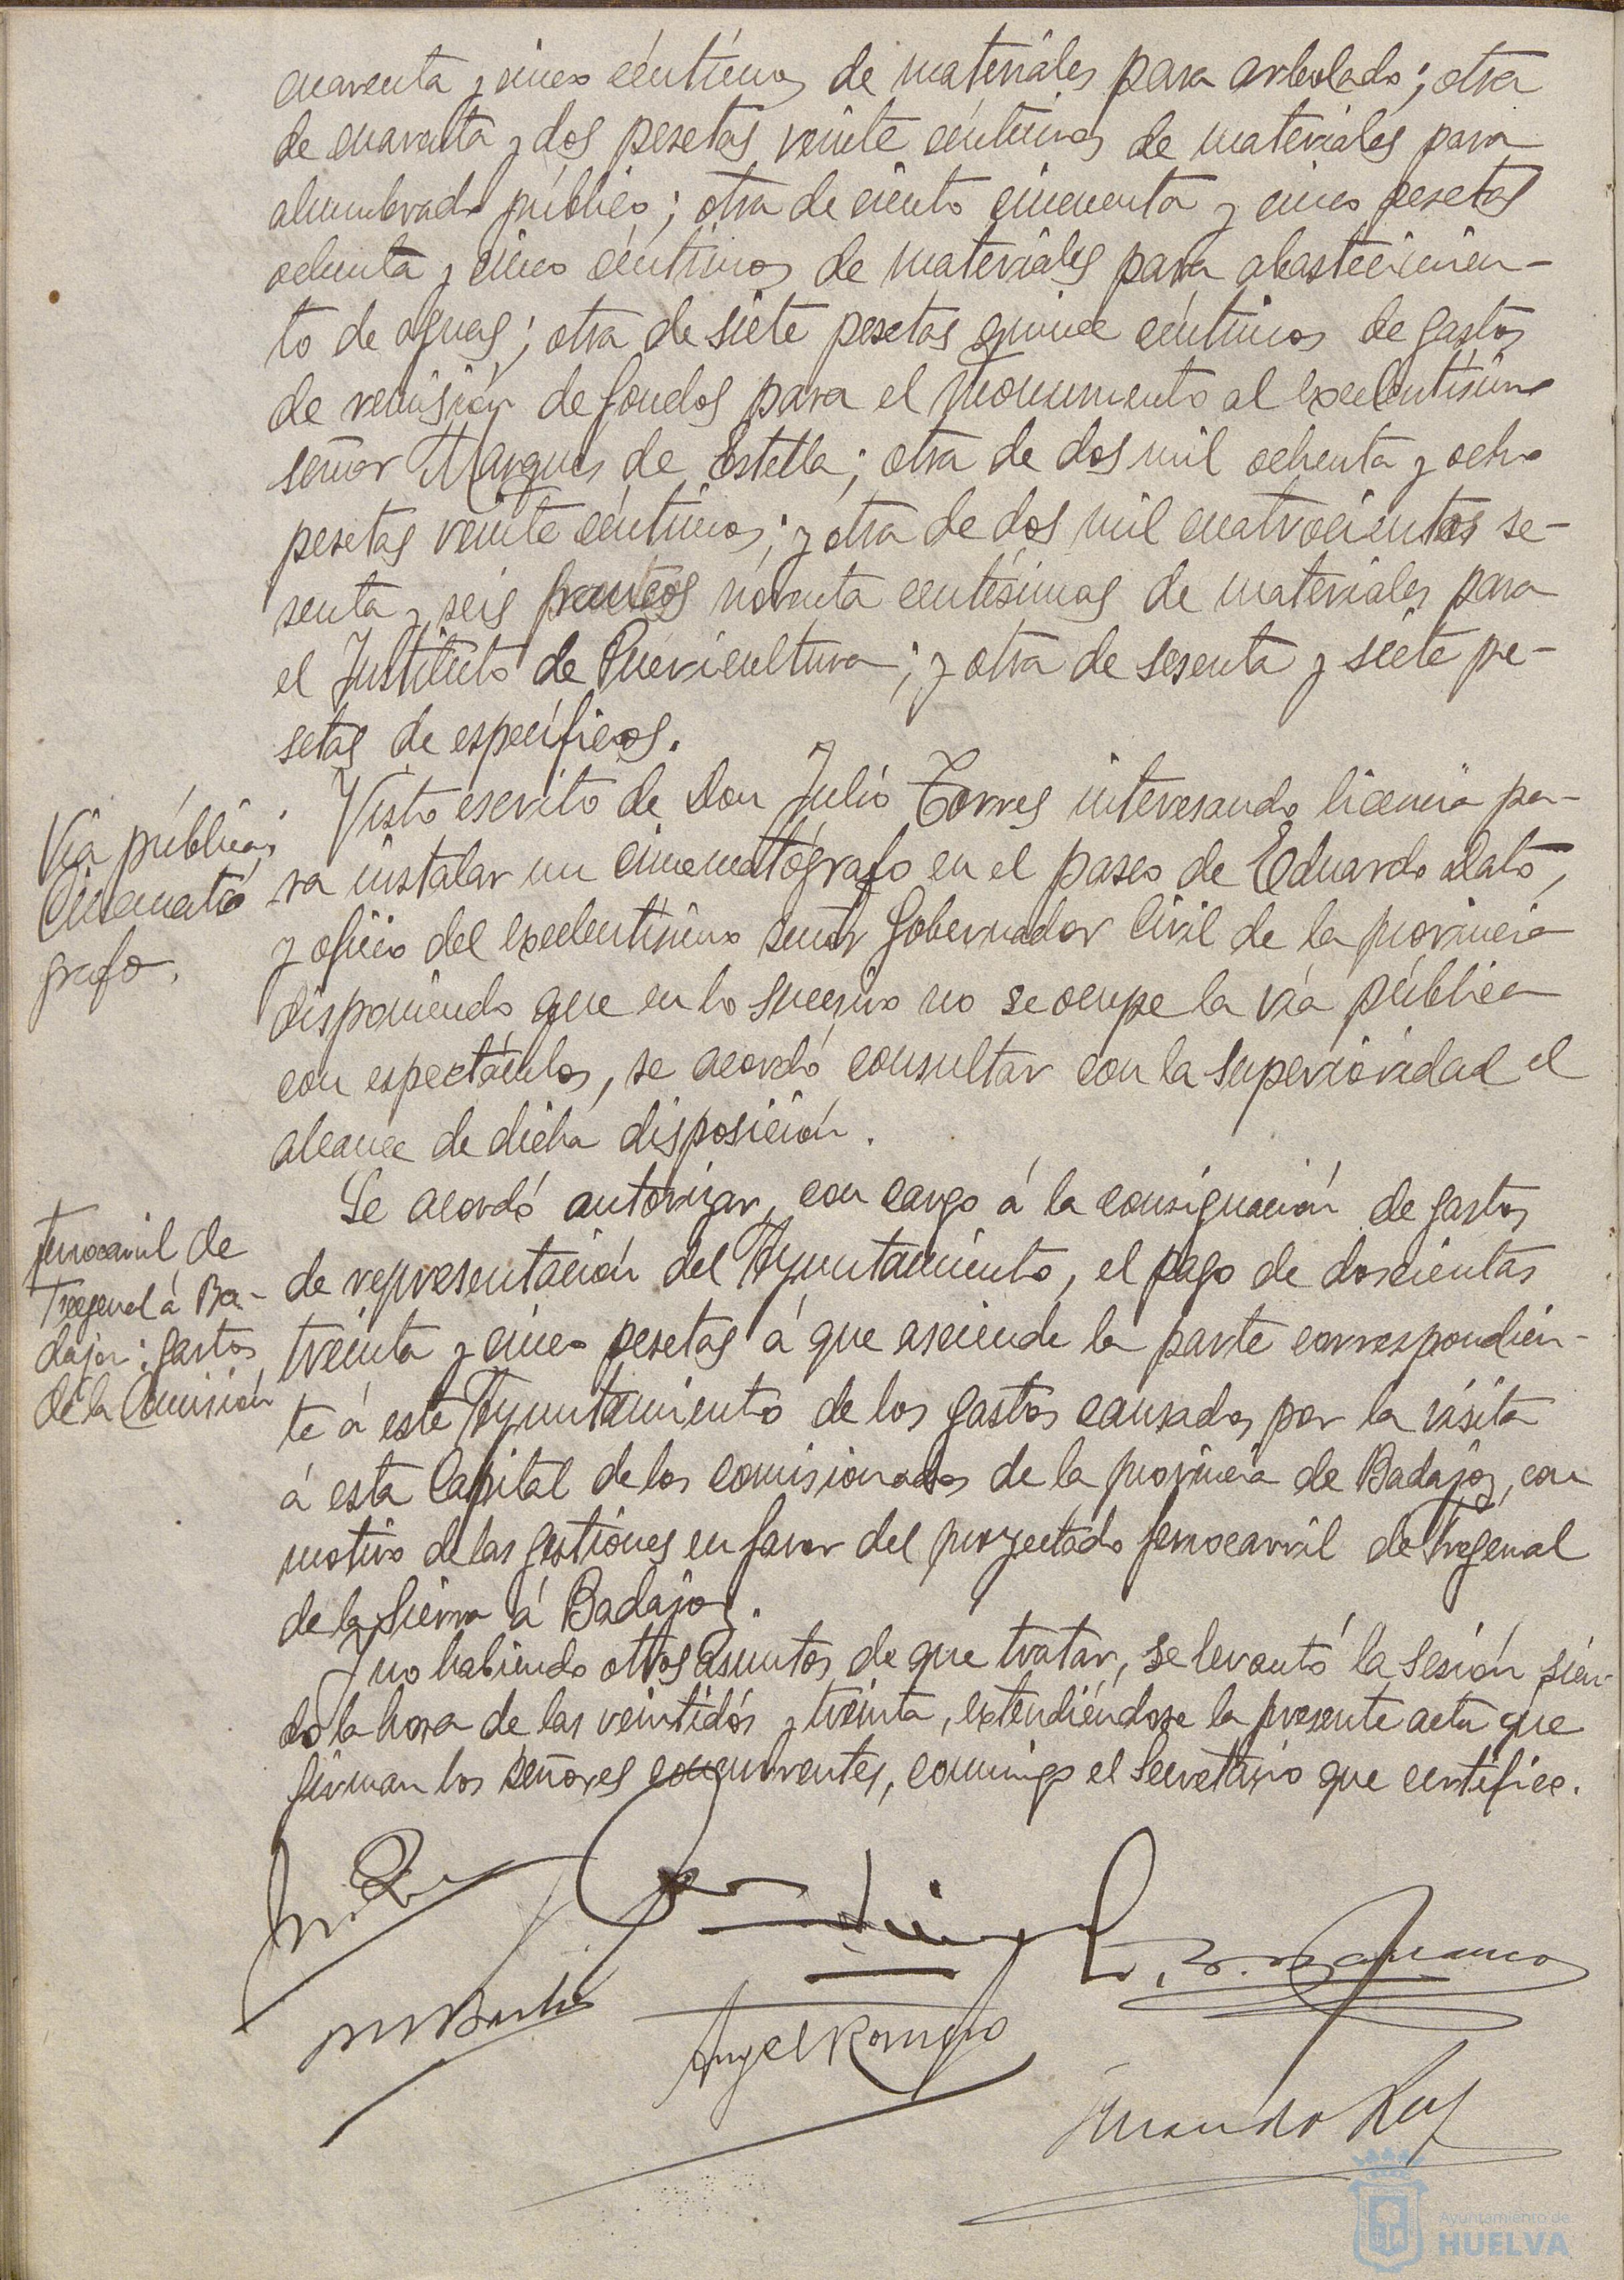 cuarenta y cinco céntimos de materiales para arbolado; otra
de cuarenta y dos pesetas veinte céntimos de materiales para
alumbrado público; otra de ciento cincuenta y cinco pesetas
ochenta y cinco céntimos de materiales para abastecimien-
to de aguas; otra de siete pesetas quince céntimos de gastos
de remisión de fondos para el monumento al excelentísimo
señor Marques de Estella; otra de dos mil ochenta y ocho
pesetas veinte céntimos; y otra de dos mil cuatrocientos se-
senta y seis francos noventa centésimas de materiales para
el Instituto de Puericultura; y otra de sesenta y siete pe-
setas de específicos.
Vía pública;
Cinemató
grafo.
Visto escrito de Don Julio Torres interesando licencia pa-
ra instalar un cinematógrafo en el paseo de Eduardo Dato,
y oficio del excelentísimo señor Gobernador Civil de la provincia
disponiendo que en lo sucesivo no se ocupe la vía pública
con espectáculos, se acordó consultar con la superioridad el
alcance de dicha disposición.
Ferrocarril de
Fregenal á Ba-
dajoz: gastos
de la Comisión
Se acordó autorizar, con cargo á la consignación de gastos
de representación del Ayuntamiento, el pago de doscientas
treinta y cinco pesetas á que asciende la parte correspondien-
te á este Ayuntamiento de los gastos causados por la visita
á esta Capital de los comisionados de la provincia de Badajoz, con
motivo de las gestiones en favor del proyectado ferrocarril de Fregenal
de la Sierra á Badajoz.
Y no habiendo otros asuntos de que tratar, se levantó la sesión sien-
do la hora de las veintidós y treinta, extendiéndose la presente acta que
firman los señores concurrentes, conmigo el Secretario que certifico.
Angel Romero
Ayuntamiento de
HUELVA